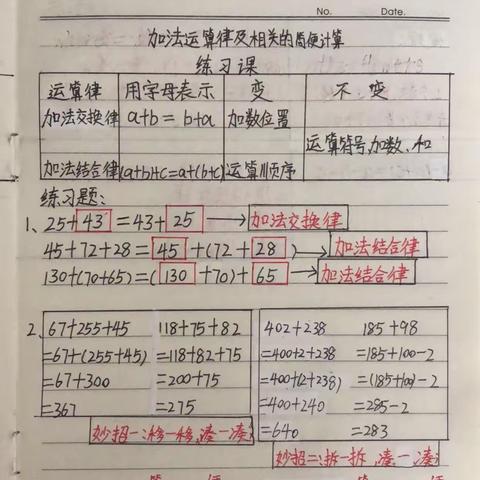 No. Date.
加法运算律及相关的简便计算
练习课
运算律 用字母表示 变 不变
加法交换律 a+b=b+a 加数位置
运算符号,加数、和
加法结合律 (a+b)+c=a+(b+c) 运算顺序
练习题:
1、25+43=43+25 → 加法交换律
45+72+28=45+(72+28) → 加法结合律
130+(70+65)=(130+70)+65 → 加法结合律
2、67+255+45 118+75+82 402+238 185+98
=67+(255+45) =118+82+75 =400+2+238 =185+100-2
=67+300 =200+75 =400+(2+238) =(185+100)-2
=367 =275 =400+240 =285-2
=640 =283
妙招一:移一移,凑一凑
妙招二:拆一拆,凑一凑